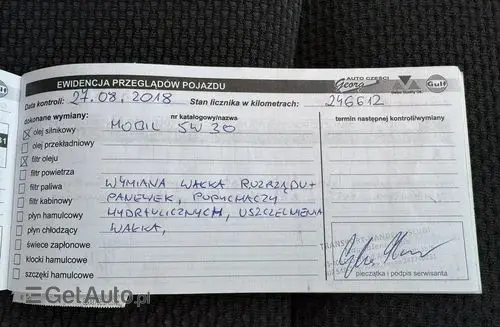 EWIDENCJA PRZEGLĄDÓW POJAZDU
AUTO CZĘŚCI
Georg
Gulf
Data kontroli: 27.08.2018 Stan licznika w kilometrach: 246612
dokonane wymiany: nr katalogowy/nazwa termin następnej kontroli/wymiany
olej silnikowy MOBIL 5W30
olej przekładniowy
filtr oleju
filtr powietrza
filtr paliwa WYMIANA WAŁKA ROZRZĄDU+
filtr kabinowy PANEWEK, POPYCHACZY
płyn hamulcowy HYDRAULICZNYCH, USZCZELNIENIA
płyn chłodzący WAŁKA,
świece zapłonowe
klocki hamulcowe
szczęki hamulcowe
pieczątka i podpis serwisanta
GetAuto.pl